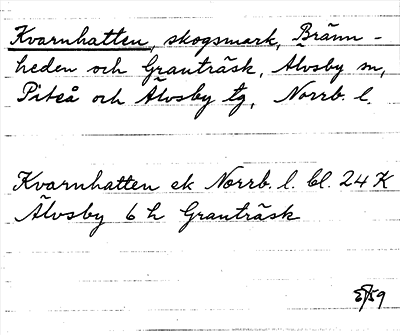 Kvarnhatten, skogsmark, Bränn-
heden och Granträsk, Älvsby sn,
Piteå och Älvsby tg, Norrb. l.
Kvarnhatten ek Norrb. l. bl. 24 K
Älvsby 6 h Granträsk